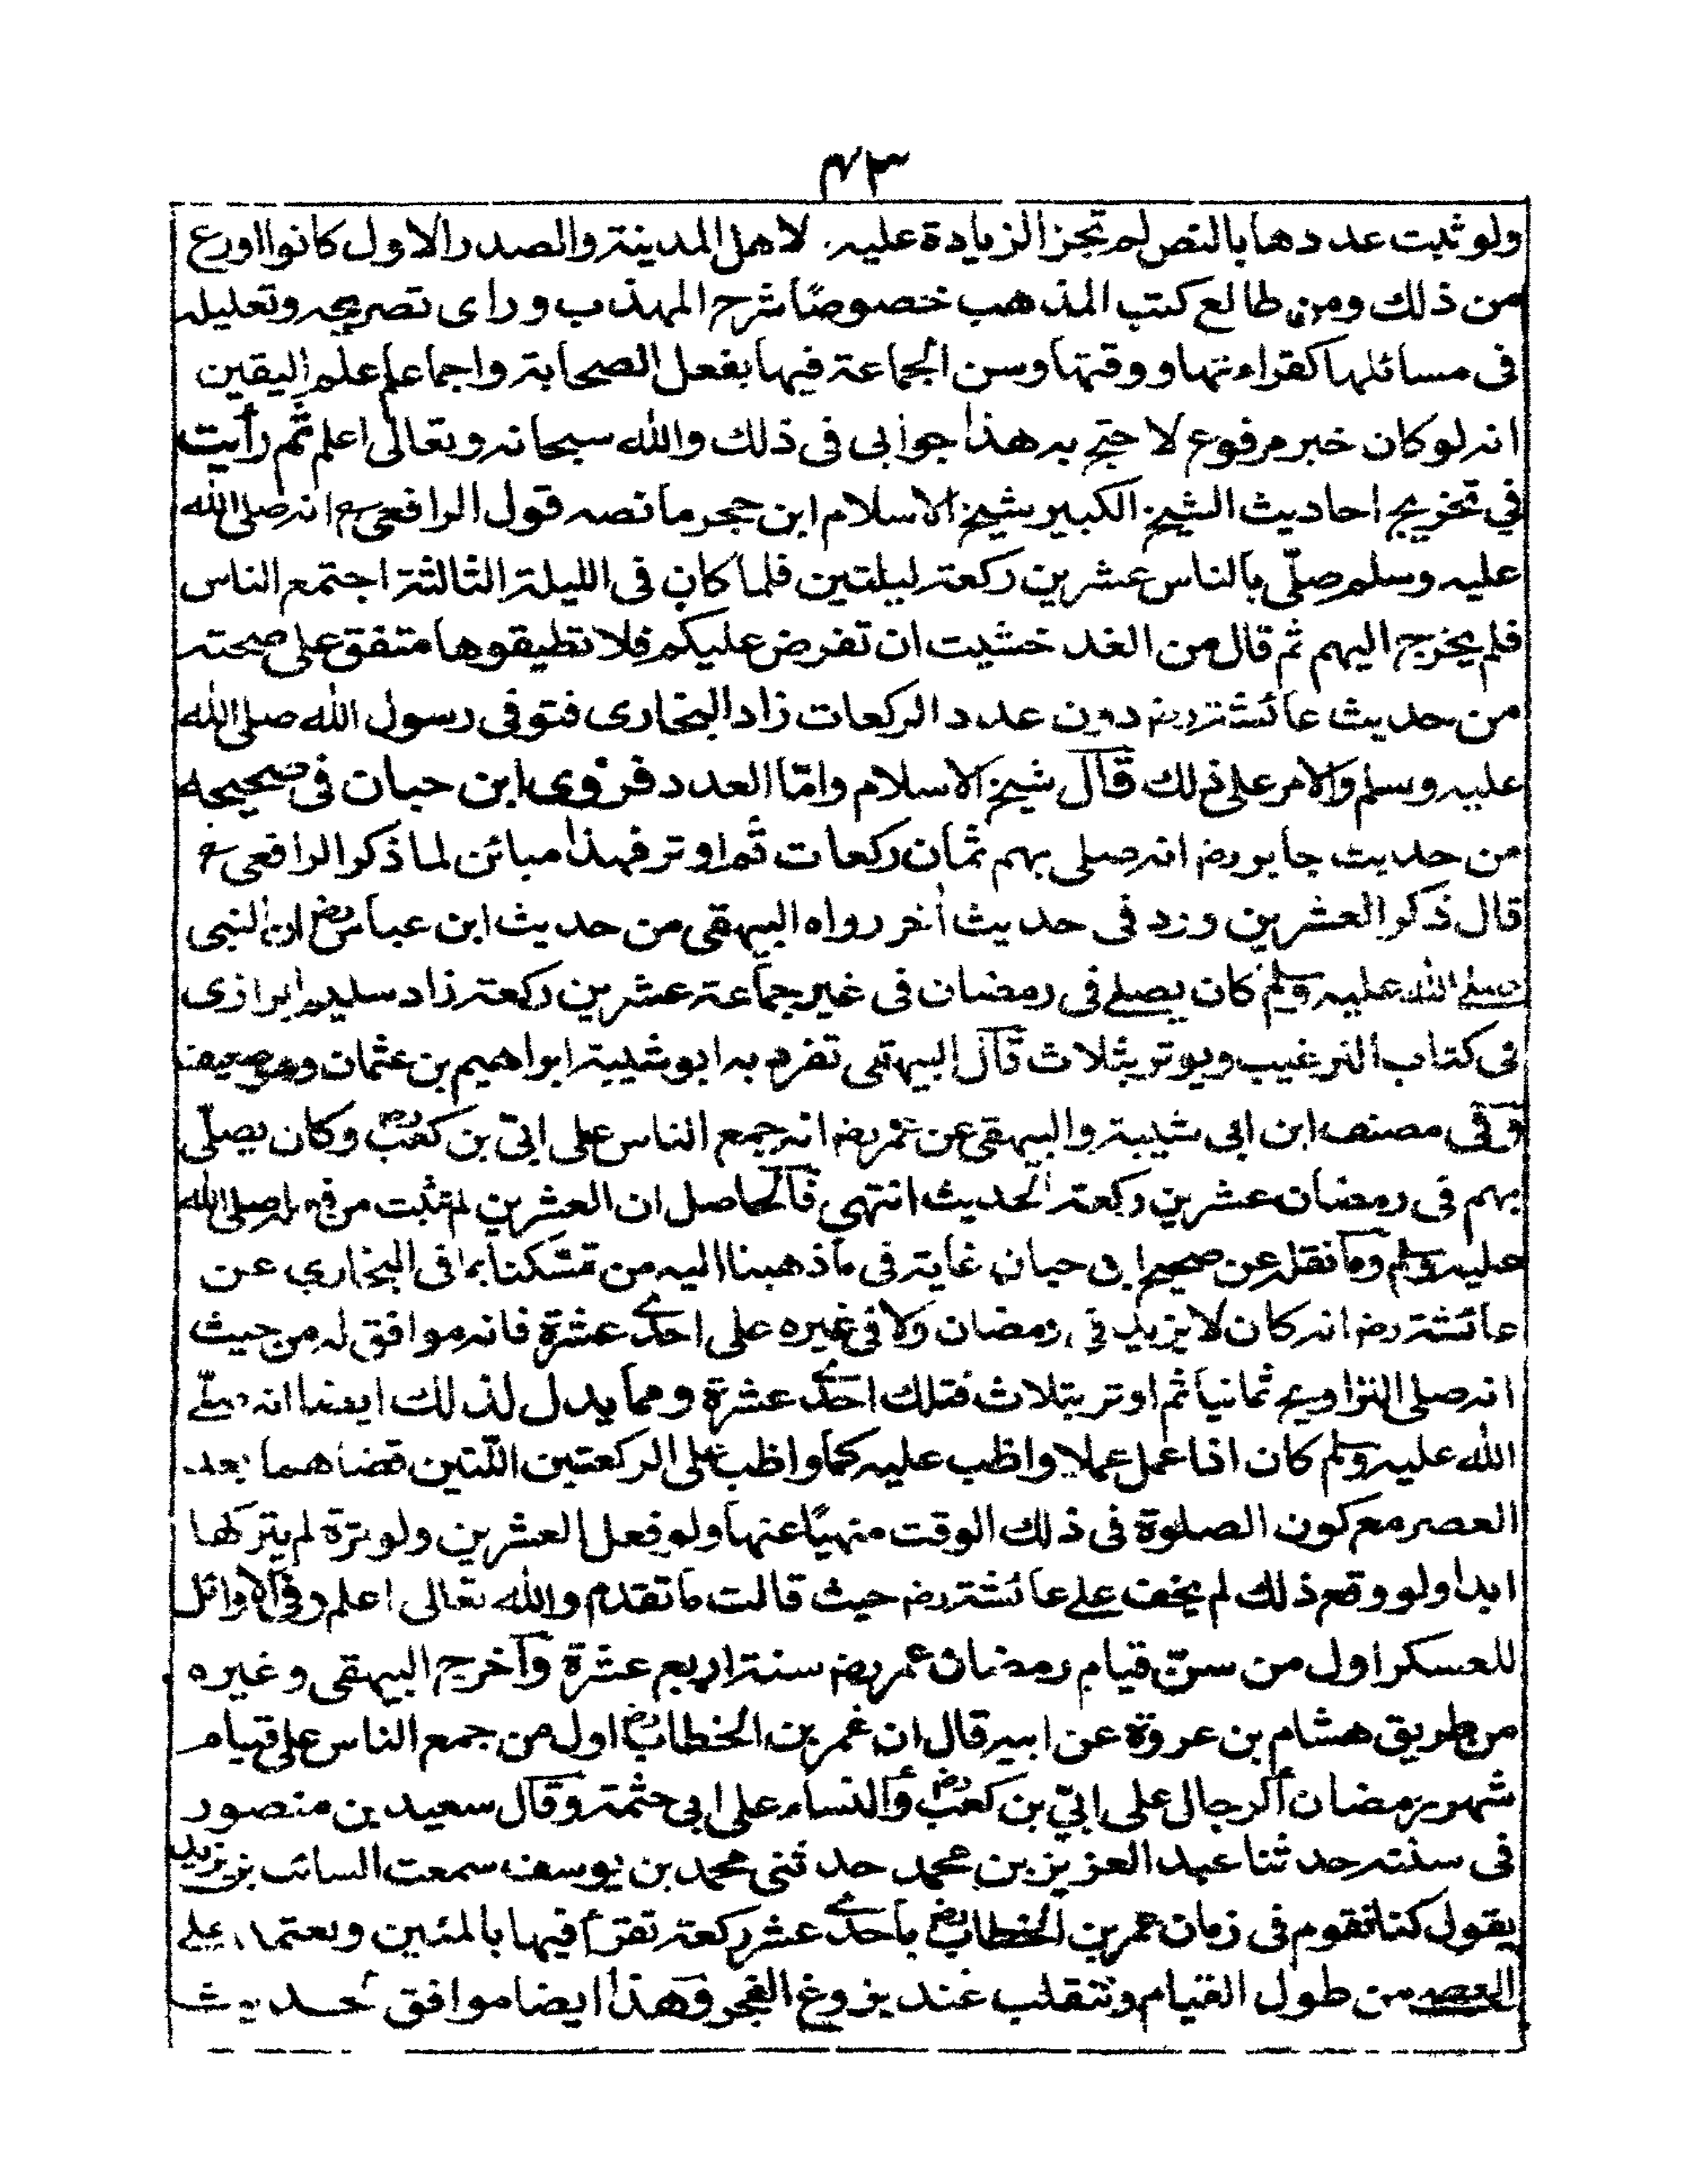 ۴۳
ولو ثبت عددها بالنص لم تجز الزيادة عليه. لاهل المدينة والصدر الاول كانوا اورع
من ذلك ومن طالع كتب المذهب خصوصًا شرح المهذب وراى تصريحه وتعليله
فى مسائلها كقراءتها ووقتها وسن الجماعة فيها بفعل الصحابة واجماعهم علم اليقين
انه لو كان خبر مرفوع لاحتج به هذا جوابى فى ذلك والله سبحانه وتعالى اعلم ثم رأيت
في تخريج احاديث الشيخ الكبير شيخ الاسلام ابن حجر ما نصه قول الرافعى رح انه صلى الله
عليه وسلم صلّى بالناس عشرين ركعة ليلتين فلما كان فى الليلة الثالثة اجتمع الناس
فلم يخرج اليهم ثم قال من الغد خشيت ان تفرض عليكم فلا تطيقوها متفق على صحته
من حديث عائشة رضہ دون عدد الركعات زاد البخارى فتوفى رسول الله صلى الله
عليه وسلم والامر على ذلك قال شيخ الاسلام وامّا العدد فروى ابن حبان فى صحيحه
من حديث جابر رضہ انه صلى بهم ثمان ركعات ثم اوتر فهذا مبائن لما ذكر الرافعى رح
قال ذكر العشرين ورد فى حديث أخر رواه البيهقى من حديث ابن عباس رضہ ان النبى
صلے الله عليه وسلم كان يصلے فى رمضان فى غير جماعة عشرين ركعة زاد سليم الرازى
فى كتاب الترغيب ويوتر بثلاث قال البيهقى تفرد به ابو شيبة ابراهيم بن عثمان وهو ضعيف
وفى مصنف ابن ابى شيبة والبيهقى عن عمر رضہ انه جمع الناس على ابىّ بن كعب رضہ وكان يصلّى
بهم فى رمضان عشرين ركعة الحديث انتهى فالحاصل ان العشرين لم تثبت من فعله صلى الله
عليه وسلم وما نقله عن صحيح ابن حبان غاية فى ما ذهبنا اليه من تمسّكنا بما فى البخارى عن
عائشة رضہ انه كان لا يزيد فى رمضان ولا فى غيره على احدى عشرة فانه موافق له من حيث
انه صلى التراويح ثمانيا ثم اوتر بثلاث فتلك احدى عشرة ومما يدل لذلك ايضا انه صلّے
الله عليه وسلم كان اذا عمل عملا واظب عليه كما واظب على الركعتين اللّتين قضاهما بعد
العصر مع كون الصلوة فى ذلك الوقت منهيًا عنها ولو فعل العشرين ولو مرة لم يتركها
ابدا ولو وقع ذلك لم يخف علے عائشة رضہ حيث قالت ما تقدم والله تعالى اعلم وفى الاوائل
للعسكر اول من سن قيام رمضان عمر رضہ سنة اربع عشرة وأخرج البيهقى وغيره
من طريق هشام بن عروة عن ابيه قال ان عمر بن الخطاب رضہ اول من جمع الناس على قيام
شهر رمضان ألرجال على ابىّ بن كعب رضہ والنساء على ابى حثمة وقال سعيد بن منصور
فى سننه حدثنا عبد العزيز بن محمد حدثنى محمد بن يوسف سمعت السائب بن يزيد
يقول كنا نقوم فى زمان عمر بن الخطاب رضہ بأحدى عشر ركعة نقرأ فيها بالمئين ونعتمد علے
العصے من طول القيام وننقلب عند بزوغ الفجر وهذا ايضا موافق لحديث